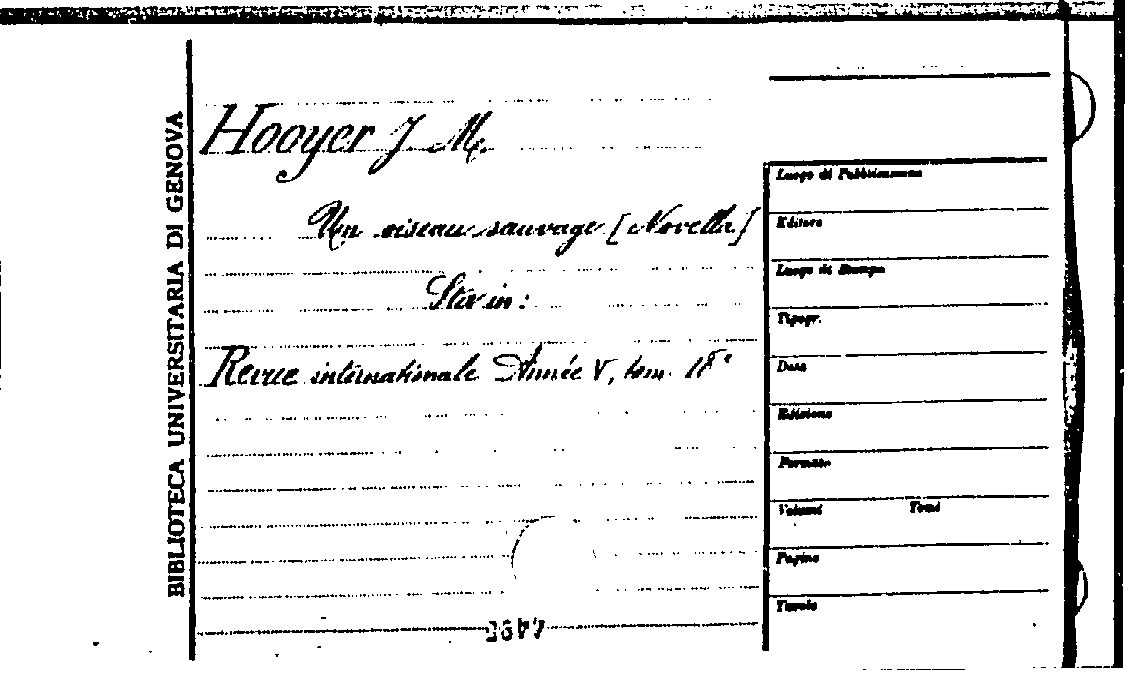 BIBLIOTECA UNIVERSITARIA DI GENOVA
Hooyer J. M.
Un oiseau sauvage [Novella]
Sta in:
Revue internationale Année V, tom. 18°
Luogo di Pubblicazione
Editore
Luogo di Stampa
Tipogr.
Data
Edizione
Formato
Volumi Tomi
Pagine
Tavole